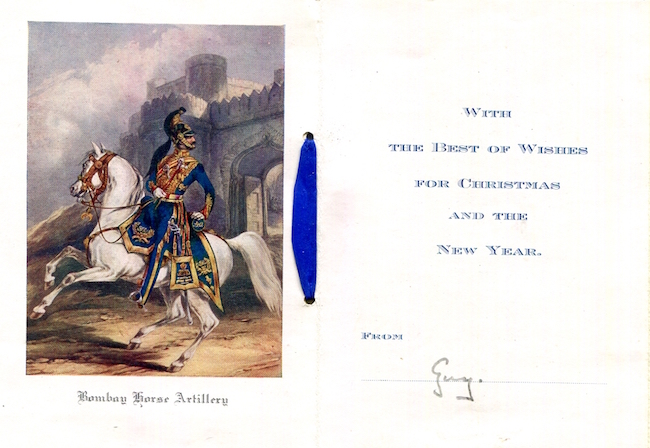 Bombay Horse Artillery
With
the Best of Wishes
for Christmas
and the
New Year.
From
Guy.